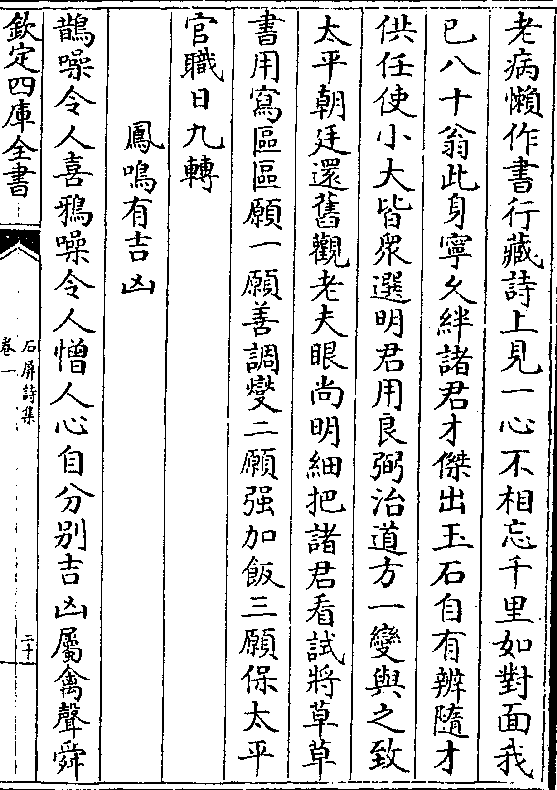 老病懶作書行藏詩上見一心不相忘千里如對面我
已八十翁此身寧久絆諸君才傑出玉石自有辨隨才
供任使小大皆衆選明君用良弼治道方一變與之致
太平朝廷還舊觀老夫眼尚明細把諸君看試將草草
書用寫區區願一願善調燮二願强加飯三願保太平
官職日九轉
鳳鳴有吉凶
鵲噪令人喜鴉噪令人憎人心自分别吉凶屬禽聲舜
欽定四庫全書
石屏詩集
卷一
二十